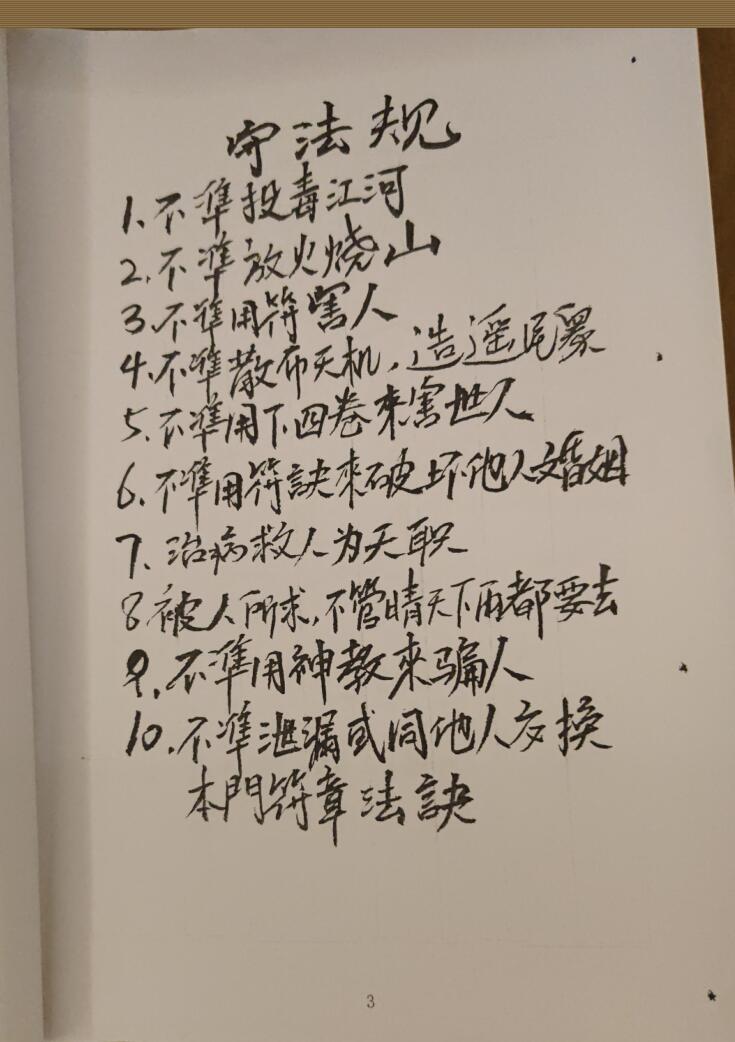 守法规
1、不準投毒江河
2、不準放火烧山
3、不準用符害人
4、不準散布天机，造遥惑眾
5、不準用下四卷來害世人
6、不準用符訣來破坏他人婚姻
7、治病救人为天职
8 被人所求，不管晴天下雨都要去
9、不準用神教來骗人
10、不準泄漏或同他人交換
本門符章法訣
3